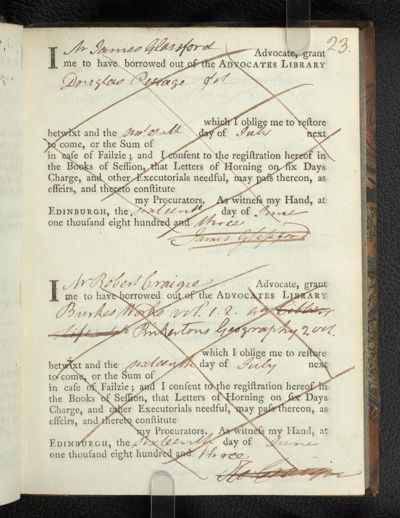 23.
I Mr James Glassford Advocate, grant
me to have borrowed out of the ADVOCATES LIBRARY
Douglas Peerage fol
which I oblige me to reſtore
betwixt and the sixteenth day of July next
to come, or the Sum of
in caſe of Failzie; and I conſent to the regiſtration hereof in
the Books of Seſſion, that Letters of Horning on ſix Days
Charge, and other Executorials needful, may paſs thereon, as
effeirs, and thereto conſtitute
my Procurators. As witneſs my Hand, at
EDINBURGH, the sixteenth day of June
one thouſand eight hundred and three
James Glassford
I Mr Robert Craigie Advocate, grant
me to have borrowed out of the ADVOCATES LIBRARY
Burkes Works vol. 1. 2.
Pinkertons Geography 2 vol.
which I oblige me to reſtore
betwixt and the sixteenth day of July next
to come, or the Sum of
in caſe of Failzie; and I conſent to the regiſtration hereof in
the Books of Seſſion, that Letters of Horning on ſix Days
Charge, and other Executorials needful, may paſs thereon, as
effeirs, and thereto conſtitute
my Procurators. As witneſs my Hand, at
EDINBURGH, the sixteenth day of June
one thouſand eight hundred and three
Ro Craigie